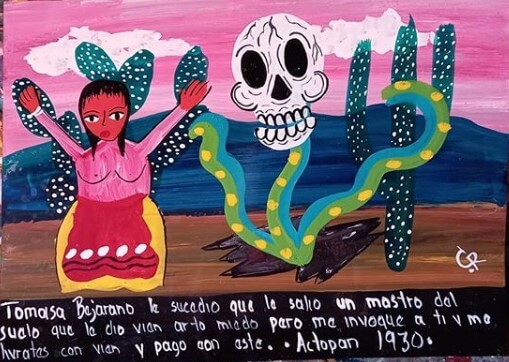 Tomasa Bejarano le sucedio que le salio un mostro del
suelo que le dio vien arto miedo pero me invoque a ti y me
livrates con vien y pago con este.. Actopan 1930.